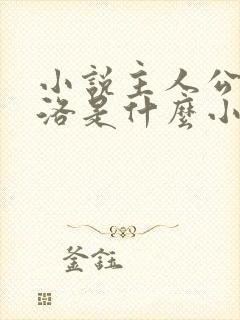 小說主人公
洛是什麼小
釜鈺